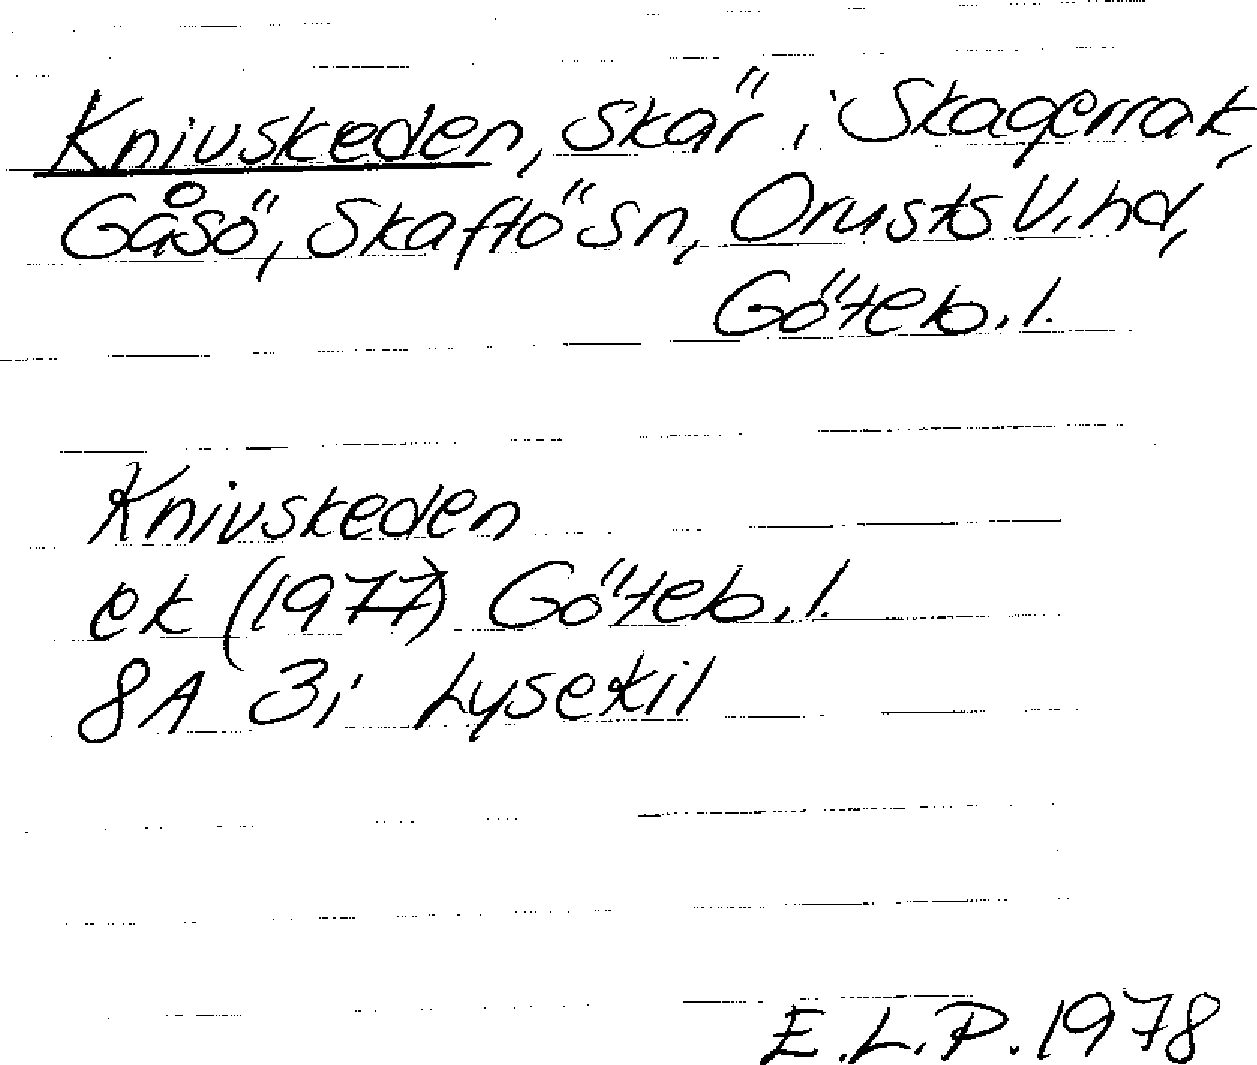 Knivskeden, skär i Skagerrak,
Gåsö, Skaftö sn, Orusts V. hd,
Göteb. l.
Knivskeden
ek (1977) Göteb. l.
8A 3i Lysekil
E.L.P. 1978